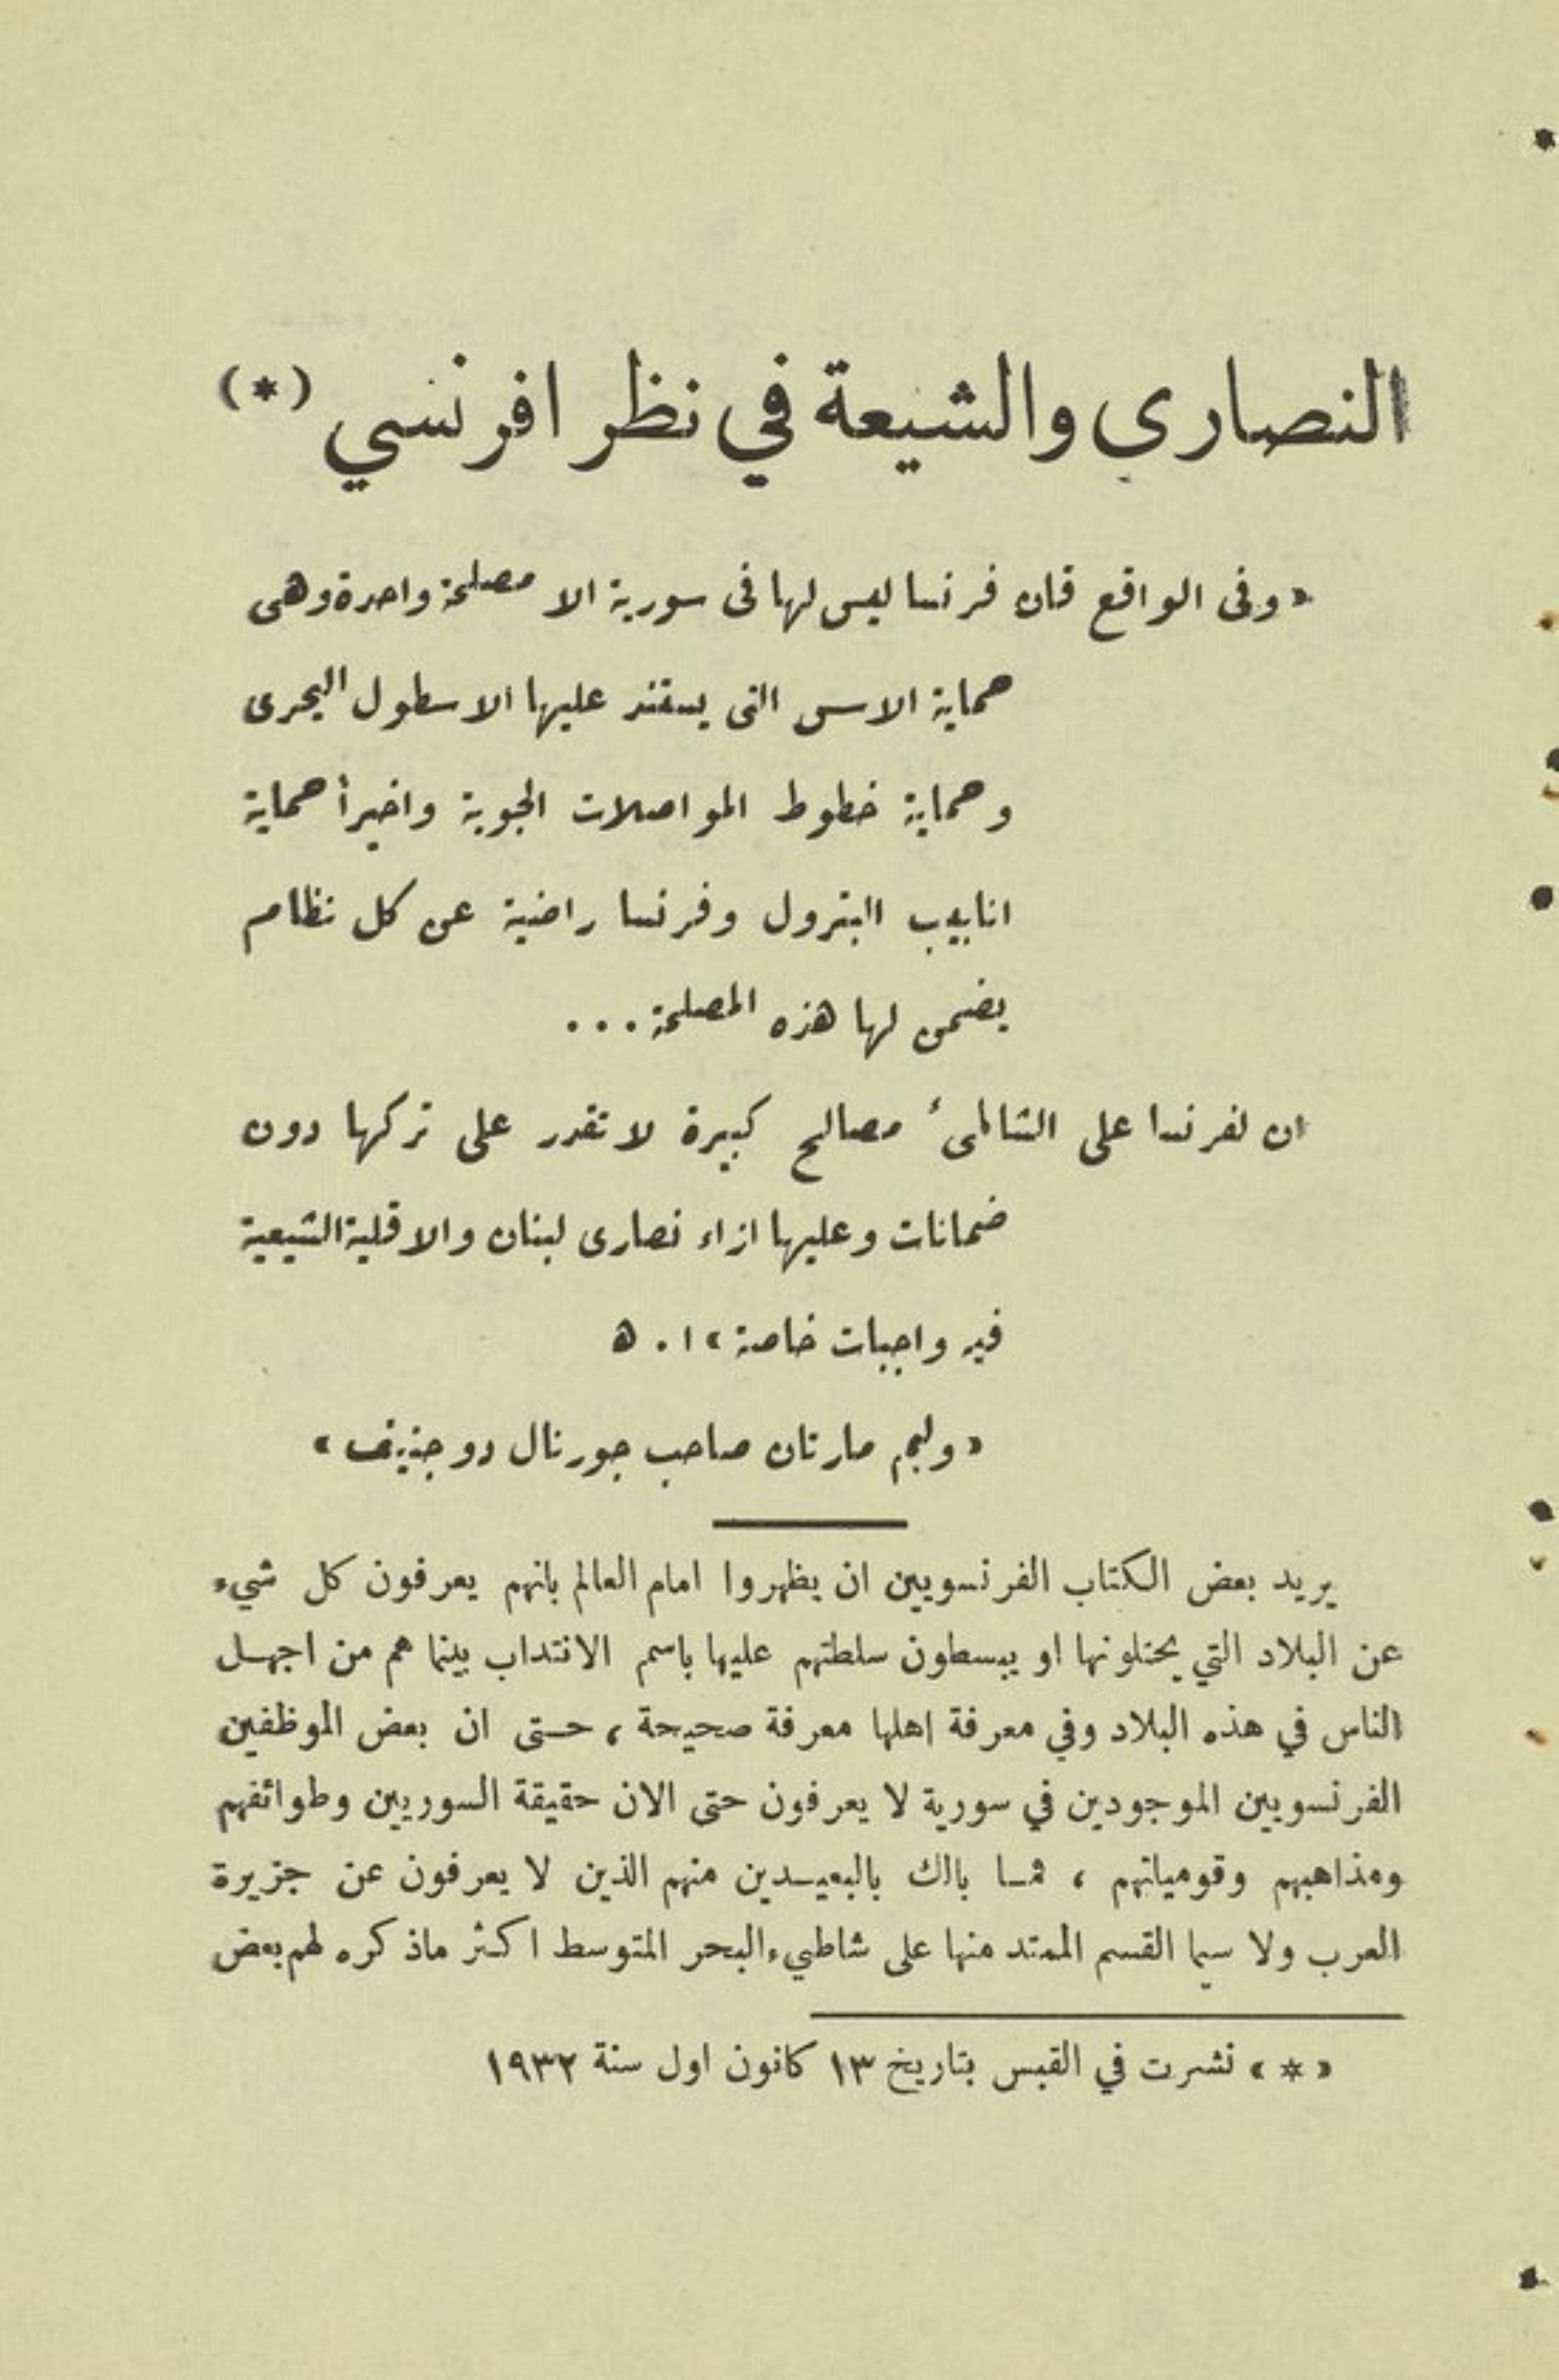 النصارى والشيعة في نظر افرنسي (*)
«وفى الواقع فان فرنسا ليس لها فى سورية الا مصلحة واحدة وهى
حماية الاسس التى يستند عليها الاسطول البحرى
وحماية خطوط المواصلات الجوية واخيراً حماية
انابيب البترول وفرنسا راضية عن كل نظام
يضمن لها هذه المصلحة...
ان لفرنسا على الشاطئ مصالح كبيرة لا تقدر على تركها دون
ضمانات وعليها ازاء نصارى لبنان والاقلية الشيعية
فيه واجبات خاصة» ا . ه
«وليم مارتان صاحب جورنال دو جنيف»
يريد بعض الكتاب الفرنسويين ان يظهروا امام العالم بانهم يعرفون كل شيء
عن البلاد التي يحتلونها او يبسطون سلطتهم عليها باسم الانتداب بينما هم من اجهل
الناس في هذه البلاد وفي معرفة اهلها معرفة صحيحة ، حتى ان بعض الموظفين
الفرنسويين الموجودين في سورية لا يعرفون حتى الان حقيقة السوريين وطوائفهم
ومذاهبهم وقومياتهم ، فما بالك بالبعيدين منهم الذين لا يعرفون عن جزيرة
العرب ولا سيما القسم الممتد منها على شاطيء البحر المتوسط اكثر ماذكره لهم بعض
«*» نشرت في القبس بتاريخ ١٣ كانون اول سنة ١٩٣٢